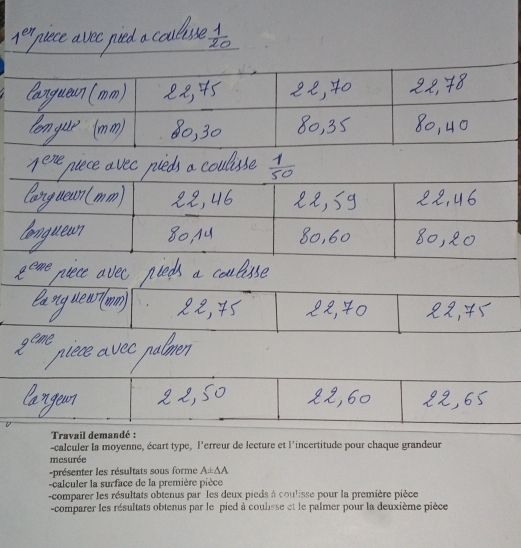 1er piece avec pied a coulisse 1/20
largueur (mm) 22,75 22,70 22,78
longue (mm) 80,30 80,35 80,40
1ere piece avec pieds a coulisse 1/50
largueur (mm) 22,46 22,59 22,46
longueur 80,14 80,60 80,20
2eme piece avec pieds a coulisse
largueur (mm) 22,75 22,70 22,75
2eme piece avec palmer
largeur 22,50 22,60 22,65
Travail demandé :
-calculer la moyenne, écart type, l'erreur de lecture et l'incertitude pour chaque grandeur
mesurée
-présenter les résultats sous forme A±ΔA
-calculer la surface de la première pièce
-comparer les résultats obtenus par les deux pieds à coulisse pour la première pièce
-comparer les résultats obtenus par le pied à coulisse et le palmer pour la deuxième pièce